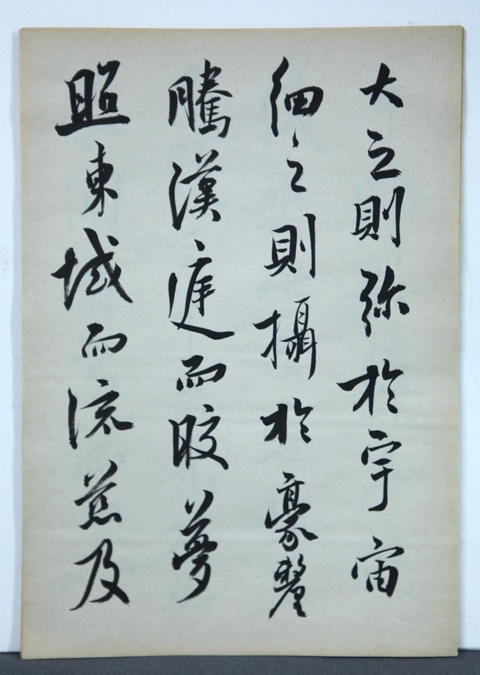 大之則弥於宇宙
細之則攝於豪釐
騰漢遅而皎夢
照東域而流慈及